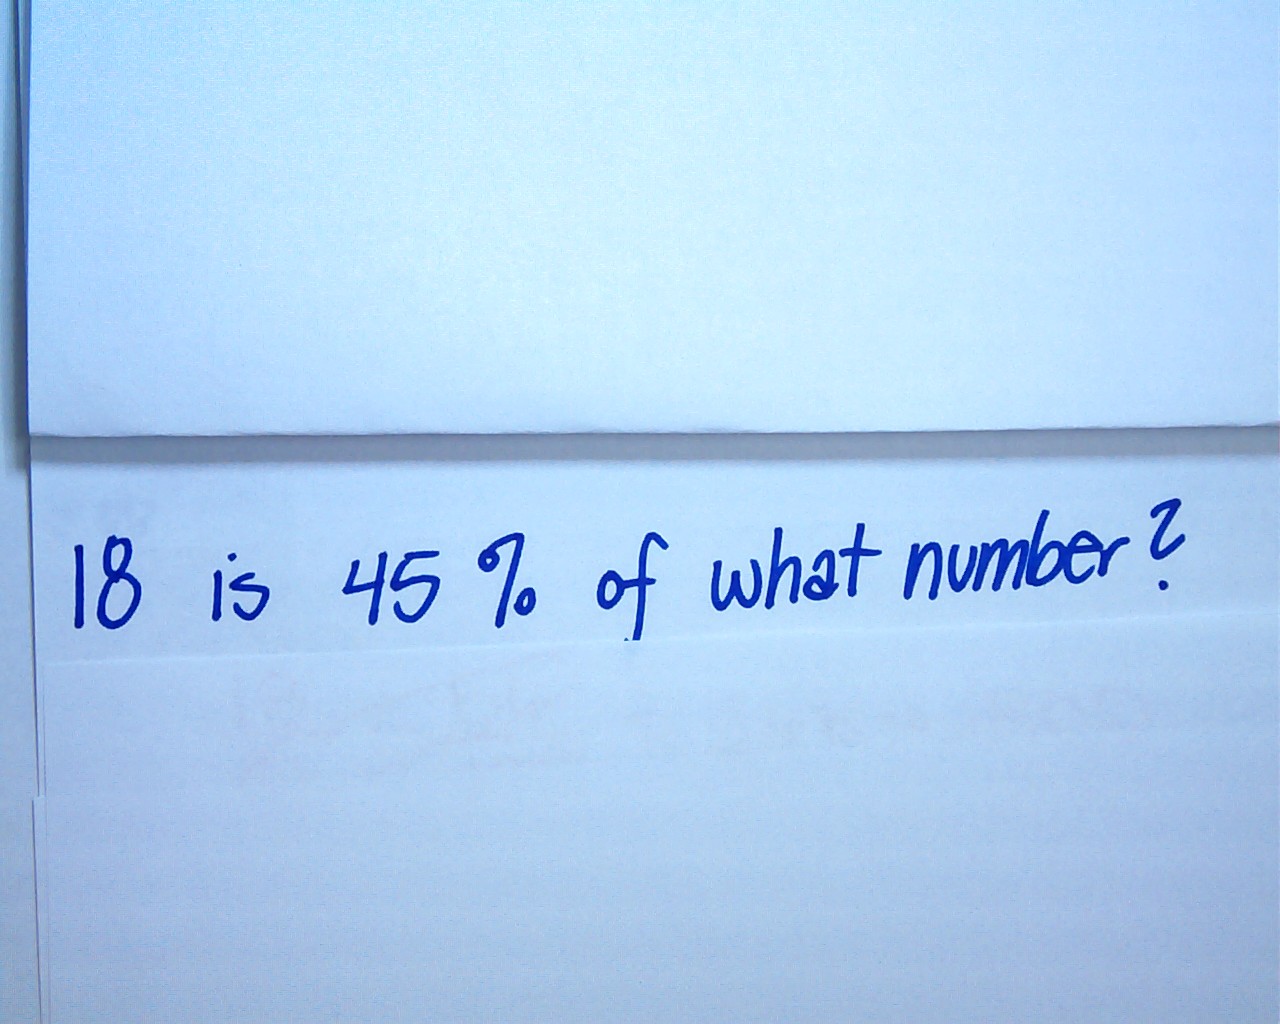 18 is 45 % of what number?